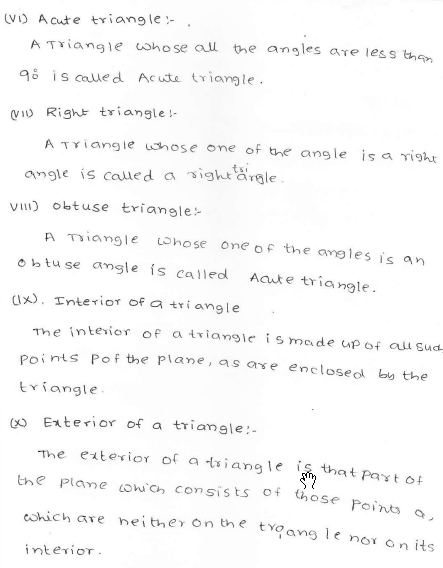 (VI) Acute triangle:-
A Triangle whose all the angles are less than
90° is called Acute triangle.
(VII) Right triangle:-
A Triangle whose one of the angle is a right
angle is called a right triangle.
VIII) obtuse triangle:-
A Triangle whose one of the angles is an
obtuse angle is called Acute triangle.
(IX). Interior of a triangle
The interior of a triangle is made up of all such
points P of the plane, as are enclosed by the
triangle.
(X) Exterior of a triangle:-
The exterior of a triangle is that part of
the plane which consists of those points Q,
which are neither on the triangle nor on its
interior.